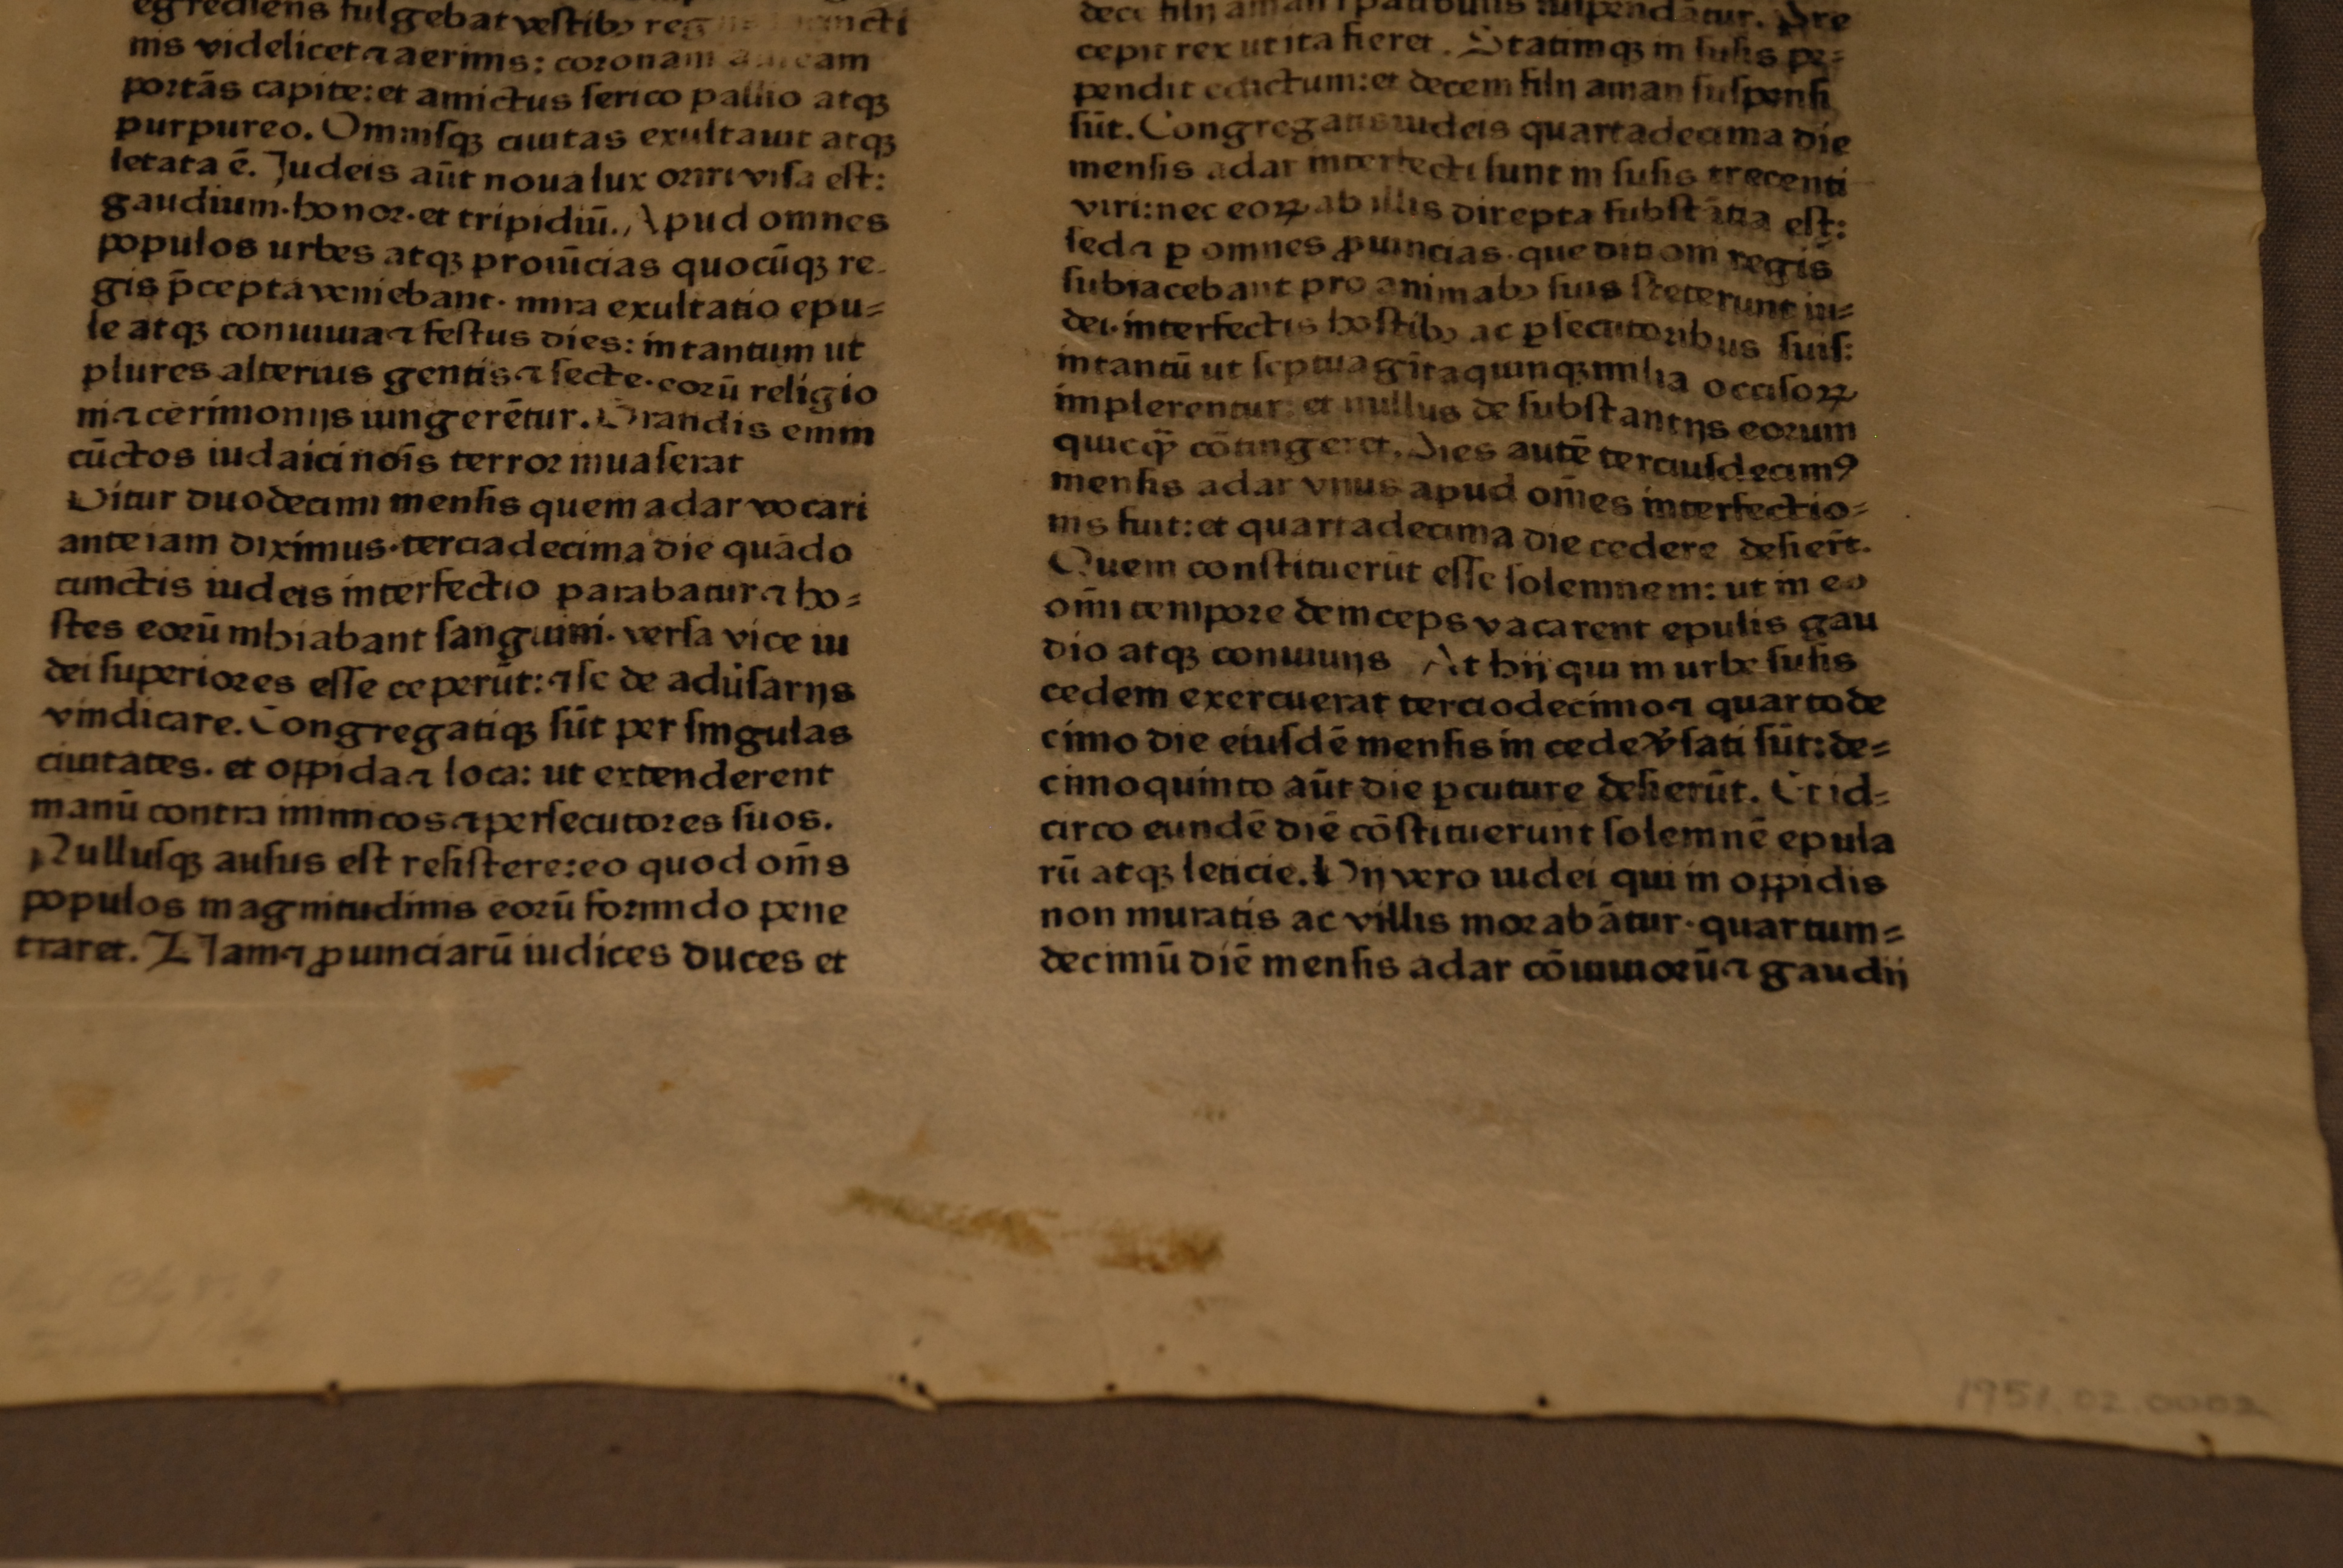 egrediens fulgebat vestibꝫ reg
nis videlicet ⁊ aerinis: coronam auream
portās capite: et amictus serico pallio atqꝫ
purpureo. Omnisqꝫ ciuitas exultauit atqꝫ
letata ē. Judeis aūt noua lux oriri visa est:
gaudium·honor·et tripidiū. Apud omnes
populos urbes atqꝫ prouīcias quocūqꝫ re-
gis p̄cepta veniebant· mira exultatio epu=
le atqꝫ conuiuia ⁊ festus dies: intantum ut
plures alterius gentis ⁊ secte·eorū religio
ni ⁊ cerimonijs iungerētur. Grandis enim
cūctos iudaici noīs terror inuaserat
Gitur duodecimi mensis quem adar vocari
ante iam diximus·terciadecima die quādo
cunctis iudeis interfectio parabatur ⁊ ho=
stes eorū inhiabant sanguini· versa vice iu
dei superiores esse ceperūt: ⁊ se de adūsarijs
vindicare. Congregatiqꝫ sūt per singulas
ciuitates. et oppida ⁊ loca: ut extenderent
manū contra inimicos ⁊ persecutores suos.
Nullusqꝫ ausus est resistere: eo quod om̄s
populos magnitudinis eorū formido pene
traret. Nam ⁊ ꝓuinciarū iudices duces et
dece filij aman ī patibulis suspendātur. Pre
cepit rex ut ita fieret. Statimqꝫ in susis pe=
pendit edictum: et decem filij aman suspensi
sūt. Congregatis iudeis quartadecima die
mensis adar interfecti sunt in susis trecenti
viri: nec eoꝝ ab illis direpta substātia est:
sed ⁊ ꝑ omnes ꝓuincias·que ditiom regis
subiacebant pro animabꝫ suis steterunt iu=
dei·interfectis hostibꝫ ac ꝑsecutoribus suis:
intantū ut septuagītaquinqꝫ milia occisoꝝ
implerentur: et nullus de substantijs eorum
quicqꝙ̄ cōtingeret. Dies autē terciusdecimꝰ
mensis adar vnus apud om̄es interfectio=
nis fuit: et quartadecima die cedere desierūt.
Quem constituerūt esse solemnem: ut in eo
om̄i tempore deinceps vacarent epulis gau
dio atqꝫ conuiuijs At hij qui in urbe susis
cedem exercuerat terciodecimo ⁊ quartode
cimo die eiusdē mensis in cede v̓sati sūt: de=
cimoquinto aūt die ꝑcuture desierūt. Et id=
circo eundē diē cōstituerunt solemnē epula
rū atqꝫ leticie. Hij vero iudei qui in oppidis
non muratis ac villis morabātur·quartum=
decimū diē mensis adar cōuiuiorū ⁊ gaudij
1951.02.0002